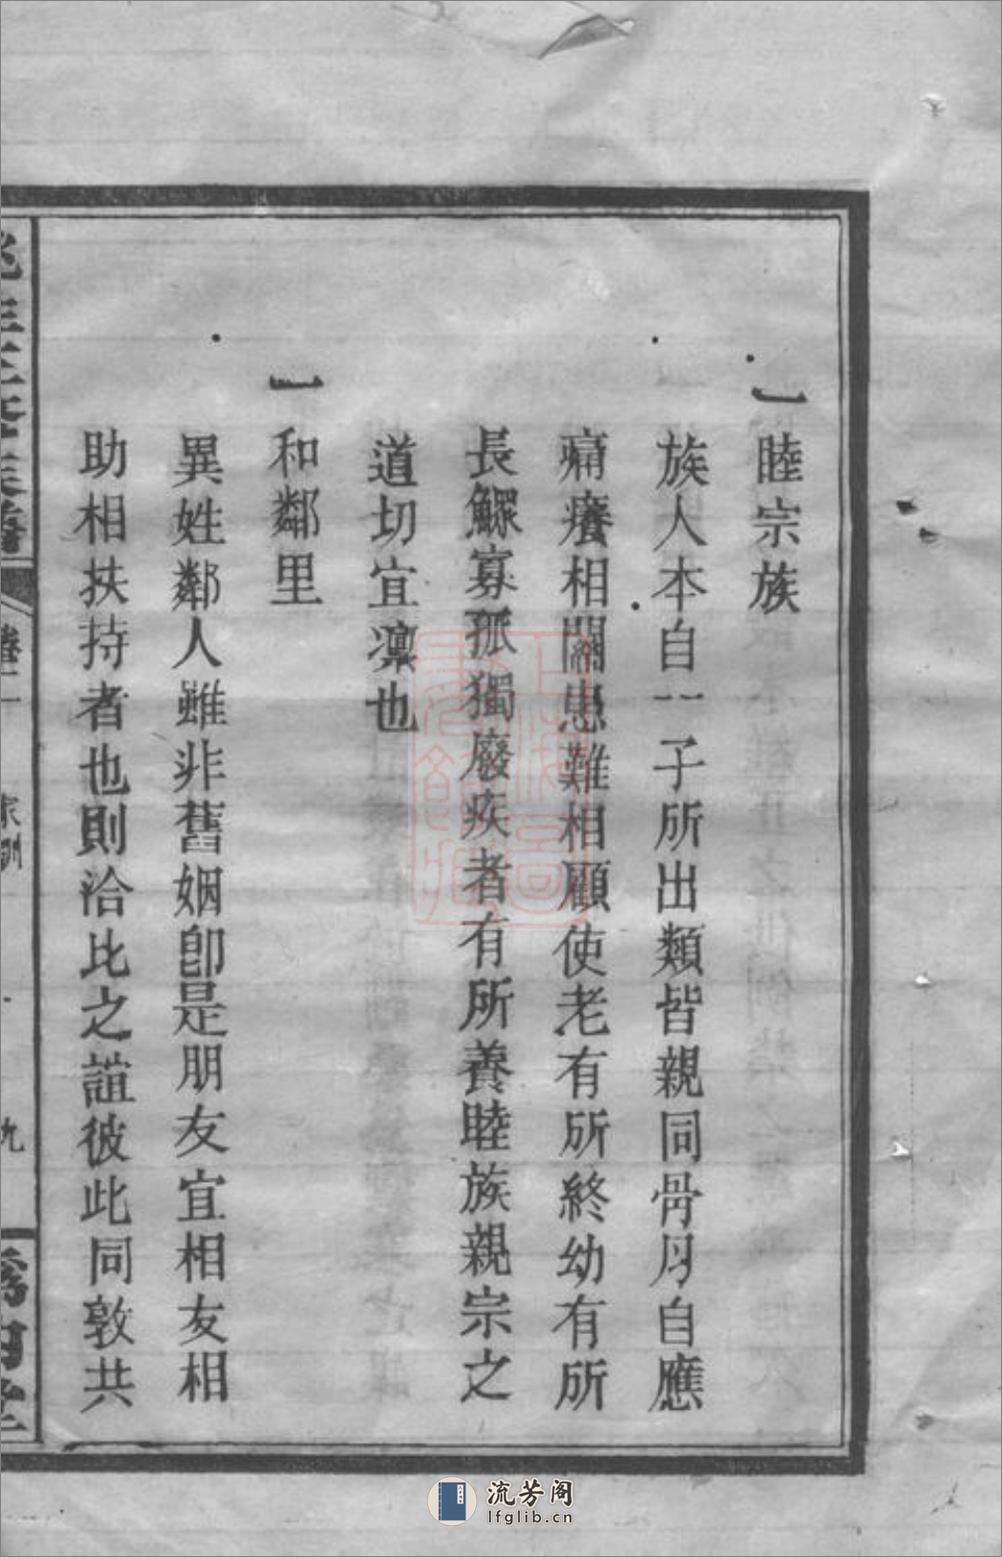 一睦宗族
族人本自一子所出類皆親同骨月自應
痛癢相關患難相顧使老有所終幼有所
長鰥寡孤獨廢疾者有所養睦族親宗之
道切宜凛也
一和鄰里
異姓鄰人雖非舊姻卽是朋友宜相友相
助相扶持者也則洽比之誼彼此同敦共
卷二
家訓
九
流芳阁
lfglib.cn